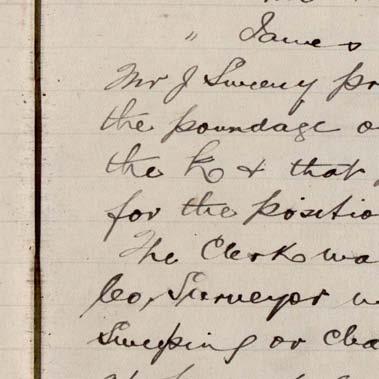 " James
Mr J Sweeny pr
the poundage o
the & that
for the positio
The Clerk wa
Co, Surveyor w
Sweeping or cha